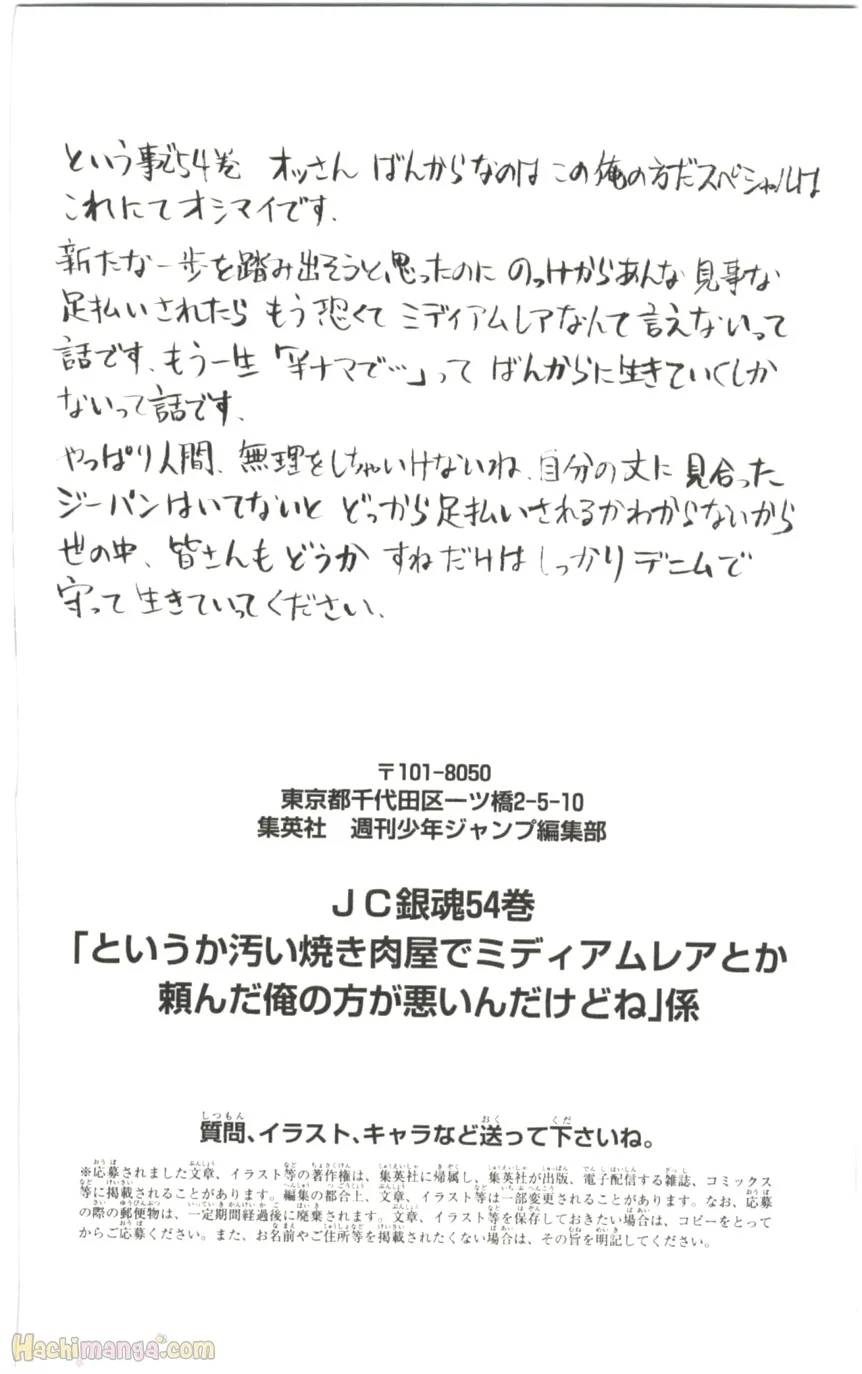 という事で54巻 オッさん ばんからなのは この俺の方だスペシャルは
これにてオシマイです.
新たな一歩を踏み出そうと思ったのに のっけからあんな見事な
足払いされたら もう恐くて ミディアムレアなんて言えないって
話です、もう一生「半ナマで…」って ばんからに生きていくしか
ないって話です.
やっぱり人間、無理をしちゃいけないね、自分の丈に見合った
ジーパンはいてないと どっから足払いされるかわからないから
世の中、皆さんもどうか すねだけはしっかりデニムで
守って生きていってください.
〒101-8050
東京都千代田区一ツ橋2-5-10
集英社　週刊少年ジャンプ編集部
ＪＣ銀魂54巻
「というか汚い焼き肉屋でミディアムレアとか
頼んだ俺の方が悪いんだけどね」係
質問、イラスト、キャラなど送って下さいね。
※応募されました文章、イラスト等の著作権は、集英社に帰属し、集英社が出版、電子配信する雑誌、コミックス
等に掲載されることがあります。編集の都合上、文章、イラスト等は一部変更されることがあります。なお、応募
の際の郵便物は、一定期間経過後に廃棄されます。文章、イラスト等を保存しておきたい場合は、コピーをとって
からご応募ください。また、お名前やご住所等を掲載されたくない場合は、その旨を明記してください。
Hachimanga.com